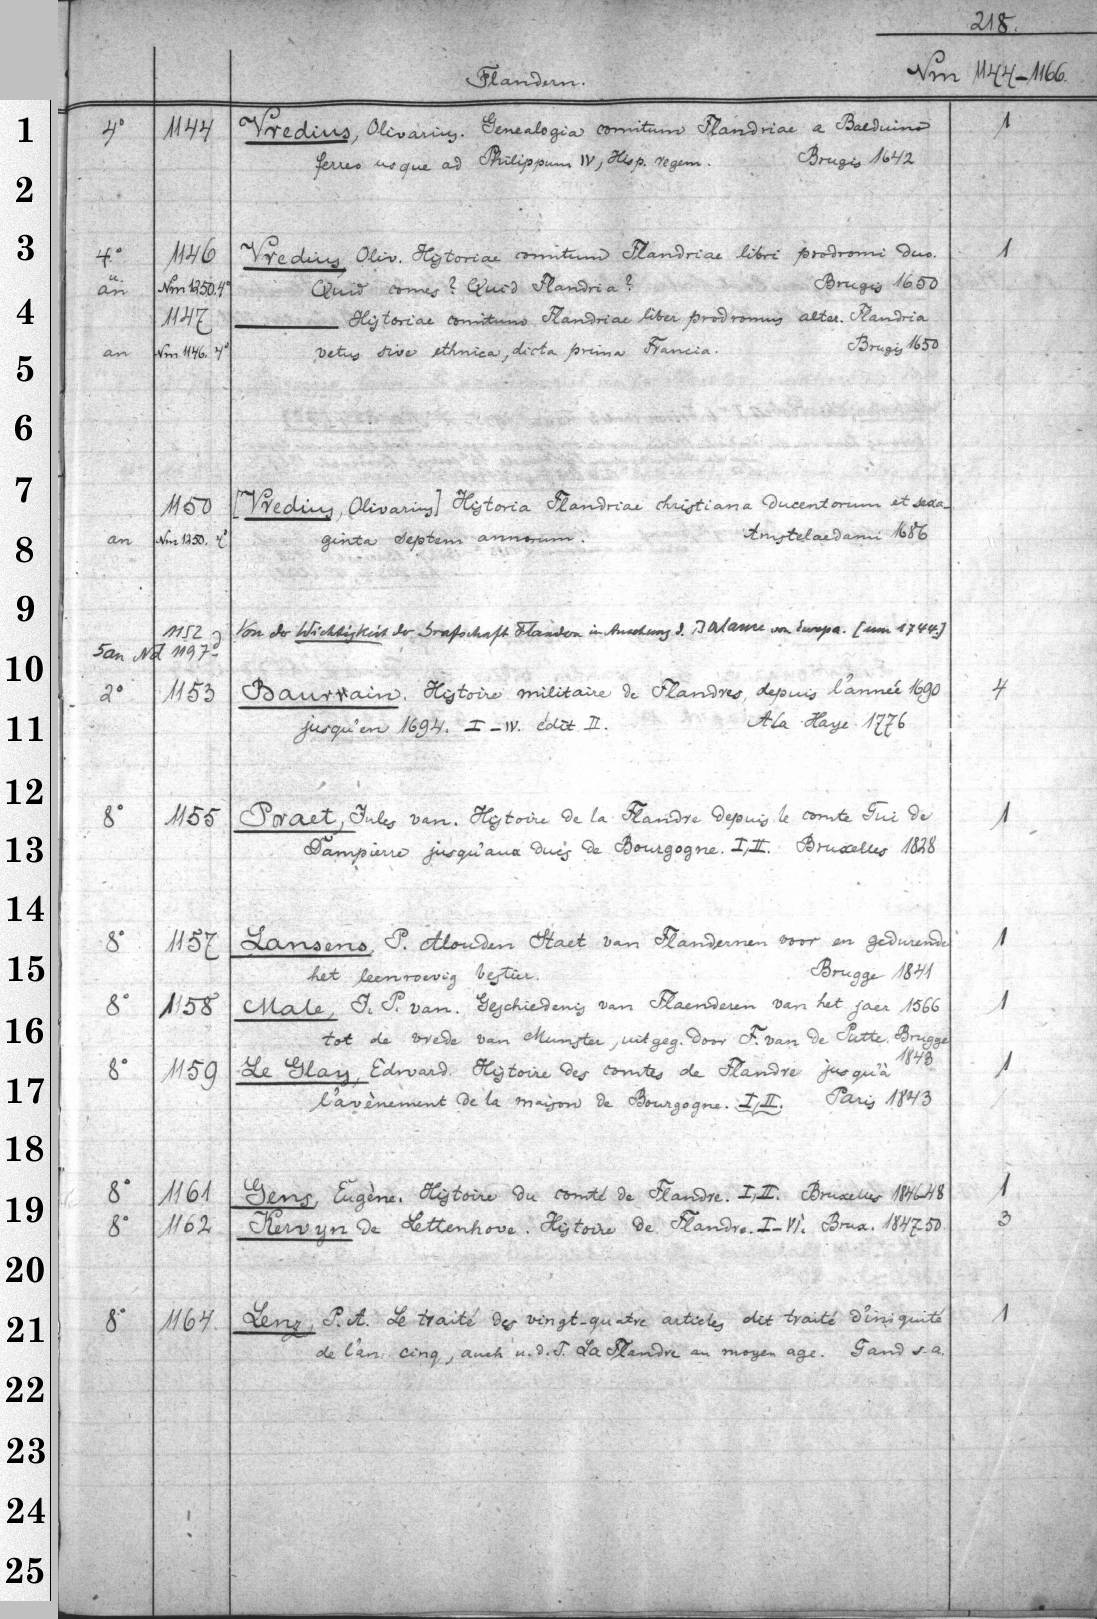 218.
Flandern.
Nm 1144-1166.
1 4° 1144 Vredius, Olivarius. Genealogia comitum Flandriae a Balduino 1
ferreo usque ad Philippum IV, Hisp. regem. Brugis 1642
2
3 4° 1146 Vredius, Oliv. Historiae comitum Flandriae libri prodromi duo. 1
ü an Nm 1250.4° Quid comes? Quid Flandria? Brugis 1650
4 1147 ——— Historiae comitum Flandriae liber prodromus alter. Flandria
5 an Nm 1146. 4° vetus sive ethnica, dicta prima Francia. Brugis 1650
6
7 1150 [Vredius, Olivarius] Historia Flandriae christiana ducentorum et sexa-
8 an Nm 1250. 4° ginta septem annorum. Amstelaedami 1686
9 1152 Von der Wichtigkeit der Grafschaft Flandern in Ansehung d. Balance von Europa. [um 1744.]
5 an Nd 1197
10 2° 1153 Baurrain. Histoire militaire de Flandres, depuis l'année 1690 4
11 jusqu'en 1694. I-IV. édit II. A la Haye 1776
12 8° 1155 Praet, Jules van. Histoire de la Flandre depuis le comte Gui de 1
13 Dampierre jusqu'aux ducs de Bourgogne. I, II. Bruxelles 1828
14
15 8° 1157 Lansens, P. Alouden Staet van Flandernen voor en gedurende 1
het leenroerig bestier. Brugge 1841
16 8° 1158 Male, J. P. van. Geschiedenis van Flaenderen van het jaer 1566 1
tot de vrede van Munster, uitgeg. door F. van de Putte. Brugge
1843
17 8° 1159 Le Glay, Edward. Histoire des comtes de Flandre jusqu'à 1
l'avènement de la maison de Bourgogne. I, II. Paris 1843
18
19 8° 1161 Gens, Eugène. Histoire du comté de Flandre. I, II. Bruxelles 1846-48 1
8° 1162 Kervyn de Lettenhove. Histoire de Flandre. I-VI. Brux. 1847-50 3
20
21 8° 1164 Lenz, P. A. Le traité des vingt-quatre articles dit traité d'iniquité 1
de l'an cinq, auch u. d. T. La Flandre au moyen age. Gand s. a.
22
23
24
25